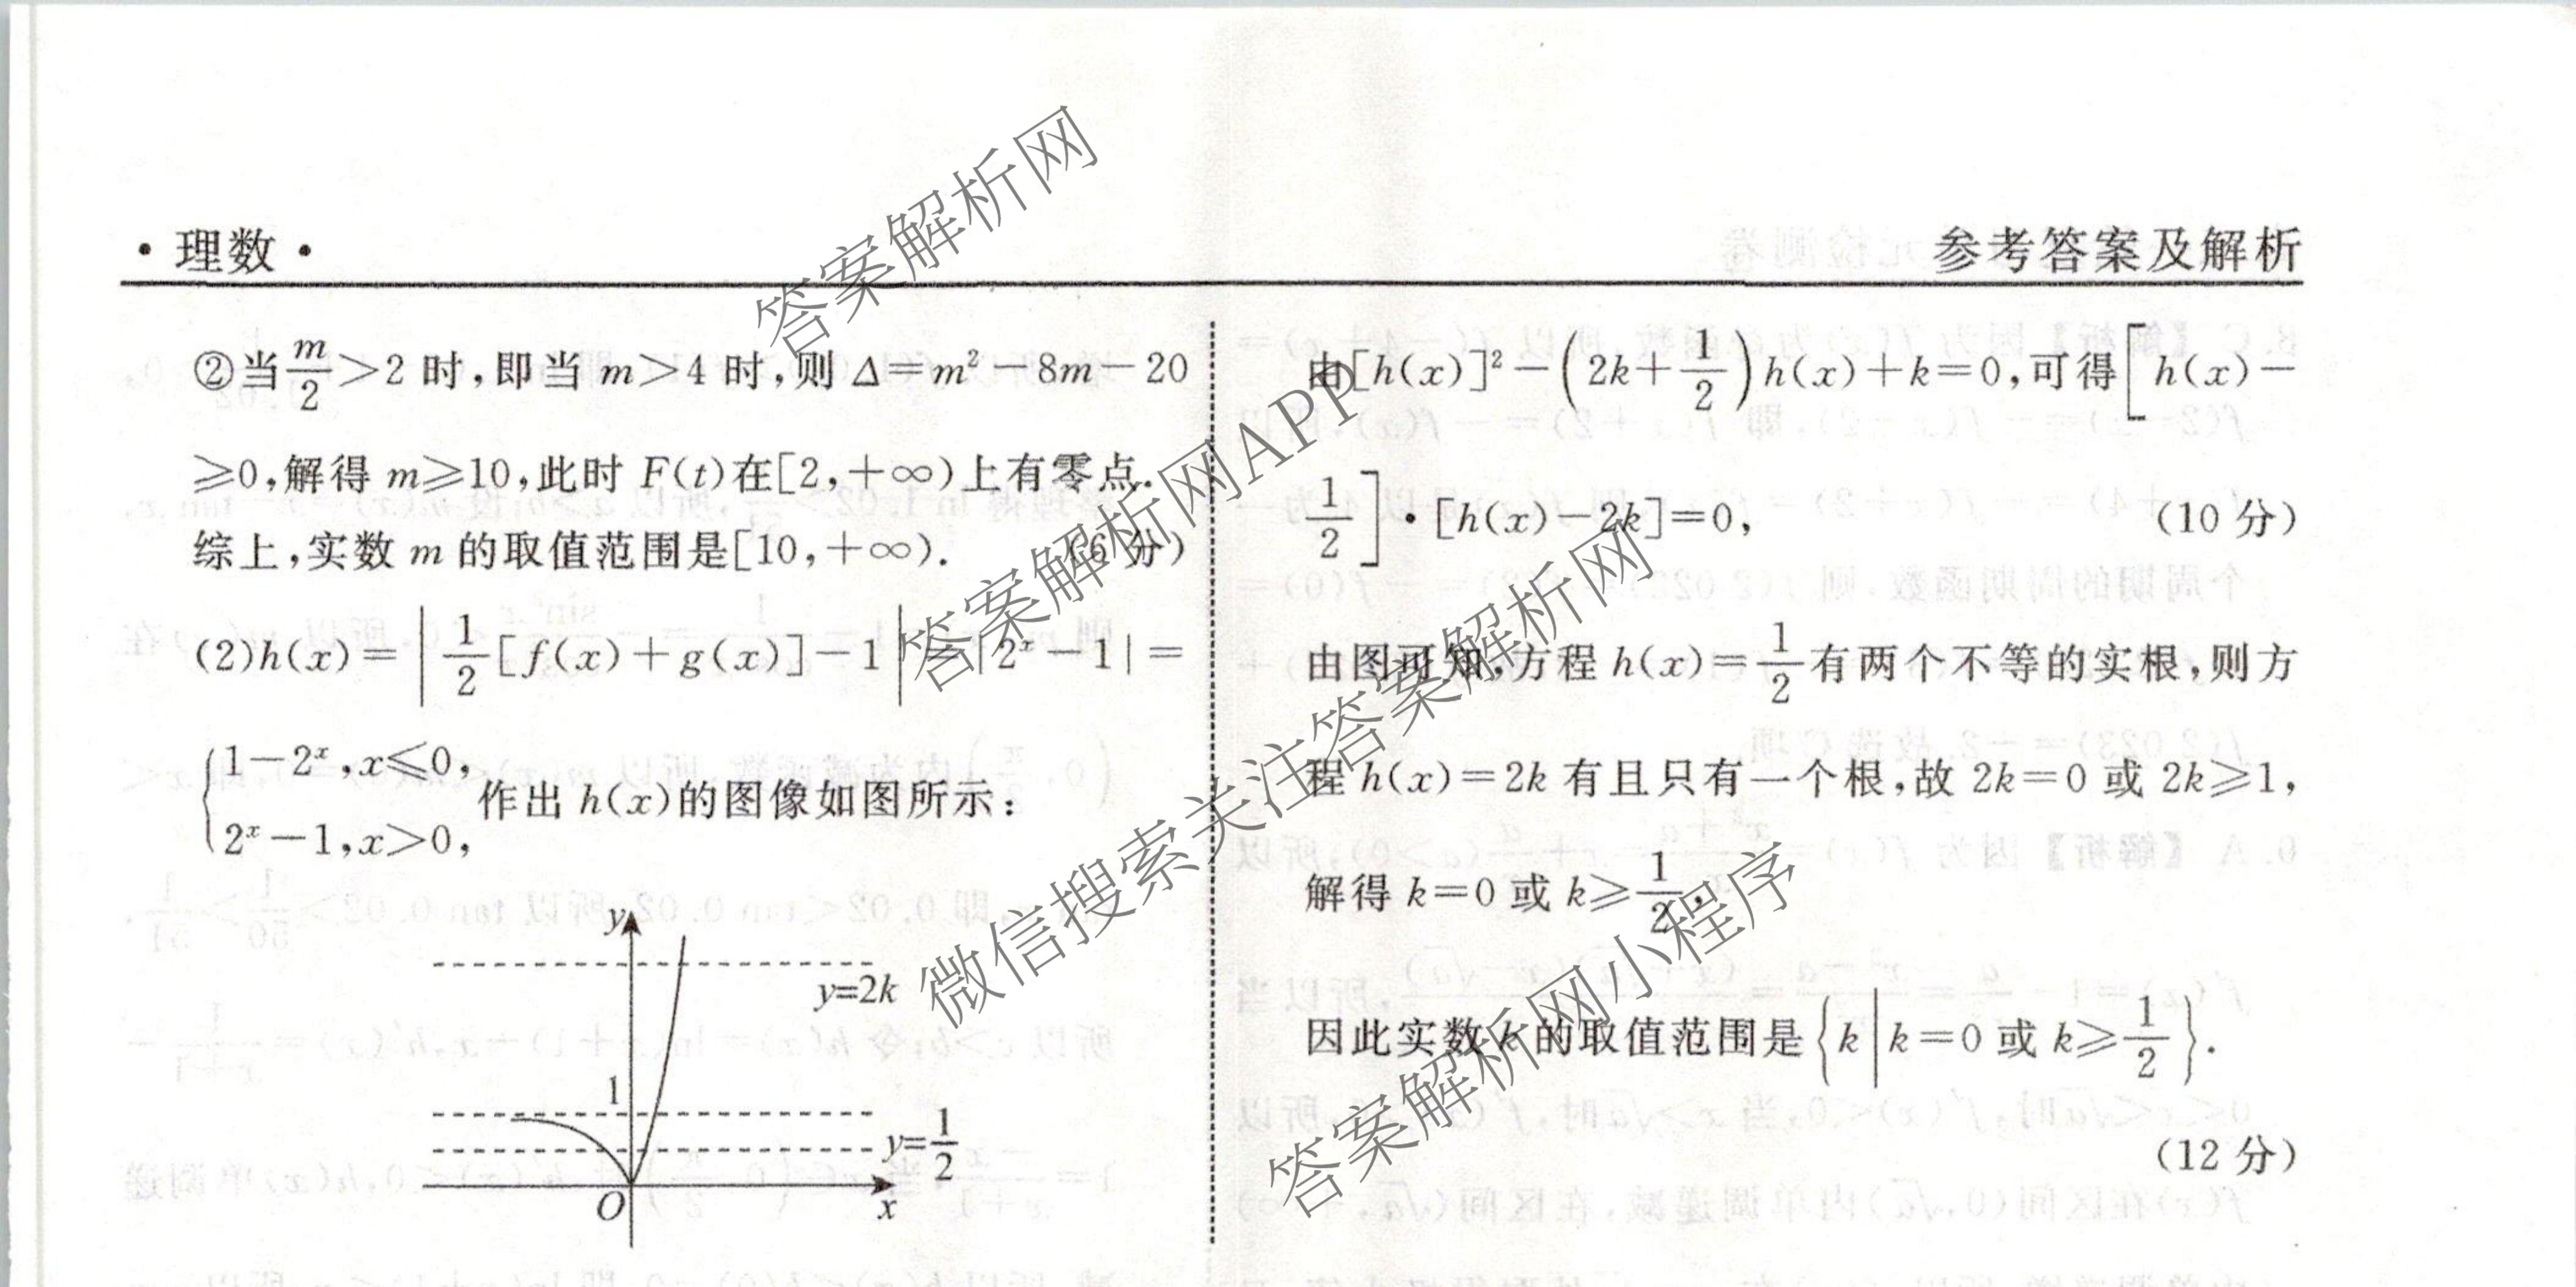 ·理数·
参考答案及解析
②当m/2>2时,即当m>4时,则Δ=m²-8m-20
≥0,解得m≥10,此时F(t)在[2,+∞)上有零点.
综上,实数m的取值范围是[10,+∞). (6分)
(2)h(x)=|1/2[f(x)+g(x)]-1|=|2ˣ-1|=
{1-2ˣ,x≤0,
2ˣ-1,x>0,
作出h(x)的图像如图所示:
y
y=2k
1
y=1/2
O
x
由[h(x)]²-(2k+1/2)h(x)+k=0,可得[h(x)-
1/2]·[h(x)-2k]=0, (10分)
由图可知,方程h(x)=1/2有两个不等的实根,则方
程h(x)=2k有且只有一个根,故2k=0或2k≥1,
解得k=0或k≥1/2,
因此实数k的取值范围是{k|k=0或k≥1/2}.
(12分)
答案解析网
答案解析网APP
微信搜索关注答案解析网
答案解析网小程序